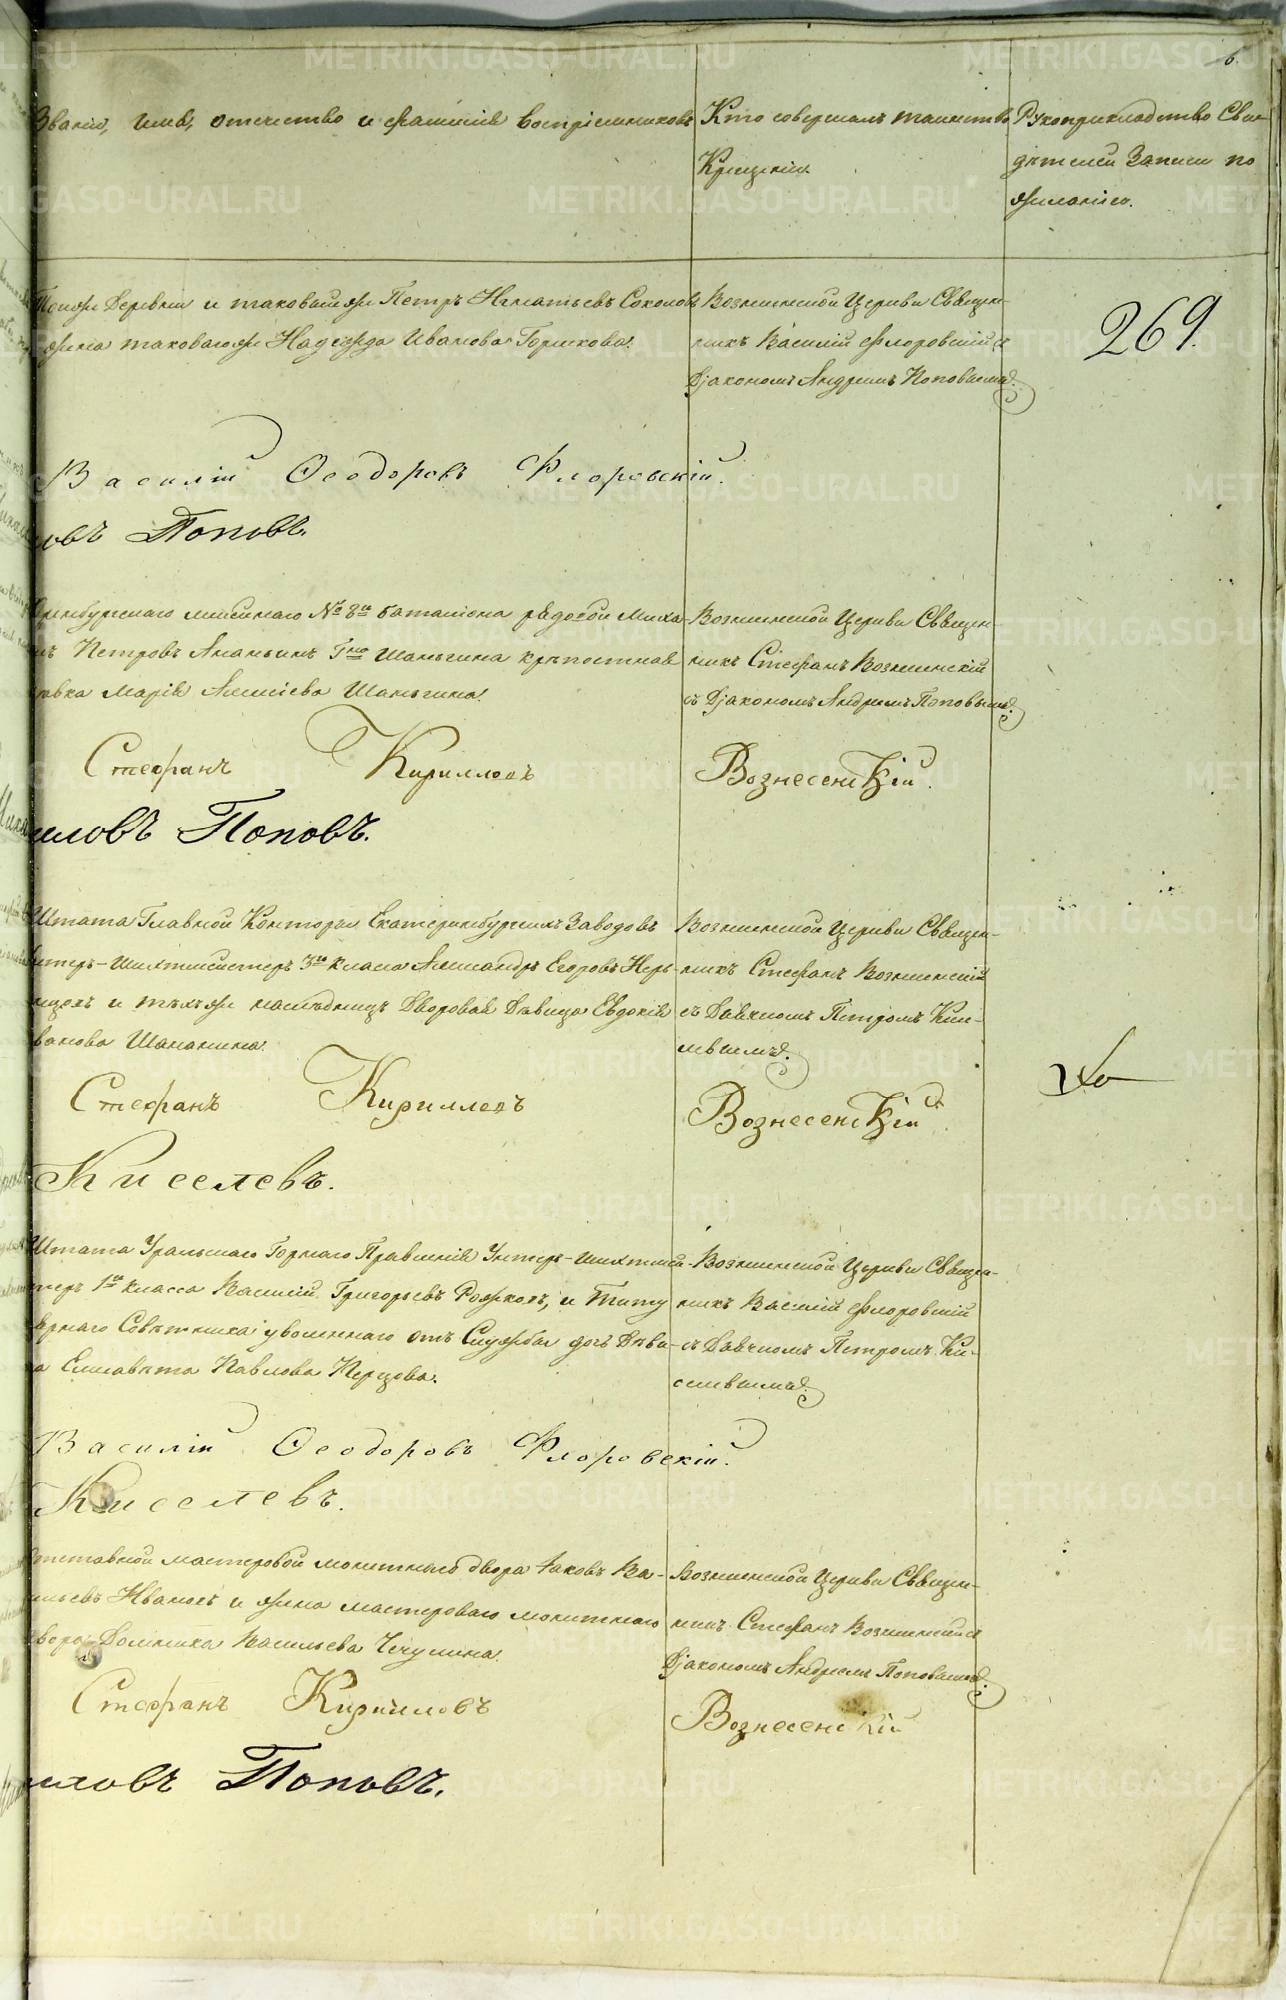 6.
Званіе, имя, отечество и фамилія воспріемниковъ
Кто совершалъ таинство
Крещенія.
Рукоприкладство Сви-
дѣтелей Записи по
желанію.
Тойже Деревни и таковыйже Петръ Игнатьевъ Соколовъ
жена таковагоже Надежда Иванова Горшкова.
Вознесенской Церкви Священ-
никъ Василій Флоровскій съ
Діакономъ Андреемъ Поповымъ.
269.
Василій Ѳеодоровъ Флоровскій.
ловъ Поповъ.
Оренбургскаго линейнаго № 8го баталіона рядовой Миха-
лъ Петровъ Ананьинъ Гна Шаньгина крѣпостная
дѣвка Марія Алексіева Шаньгина.
Вознесенской Церкви Священ-
никъ Стефанъ Вознесенскій
съ Діакономъ Андреемъ Поповымъ.
Стефанъ Кирилловъ Вознесенскій.
иловъ Поповъ.
Штата Главной Конторы Екатеринбургскихъ Заводовъ
Унтеръ-шихтмейстеръ 3го класса Александръ Егоровъ
и тѣхъже наслѣдницъ Дворовая Дѣвица Евдокія
Иванова Шананина.
Вознесенской Церкви Священ-
никъ Стефанъ Вознесенскій
съ Дьячкомъ Петромъ Кисе-
левымъ.
Стефанъ Кирилловъ Вознесенскій.
Киселевъ.
Штата Уральскаго Горнаго Правленія Унтеръ-шихтмей-
стеръ 1го класса Василій Григорьевъ Рожковъ, и Титу
лярнаго Совѣтника уволеннаго отъ Службы дочь Дѣви-
ца Елисавета Павлова Перцова.
Вознесенской Церкви Священ-
никъ Василій Флоровскій
съ Дьячкомъ Петромъ Ки-
селевымъ.
Василій Ѳеодоровъ Флоровскій.
Киселевъ.
Отставной мастеровой монетнаго двора Іаковъ Ва-
сильевъ Ивановъ и жена мастероваго монетнаго
двора Домника Васильева Чечулина.
Вознесенской Церкви Священ-
никъ Стефанъ Вознесенскій съ
Діакономъ Андреемъ Поповымъ.
Стефанъ Кирилловъ Вознесенскій
иловъ Поповъ.